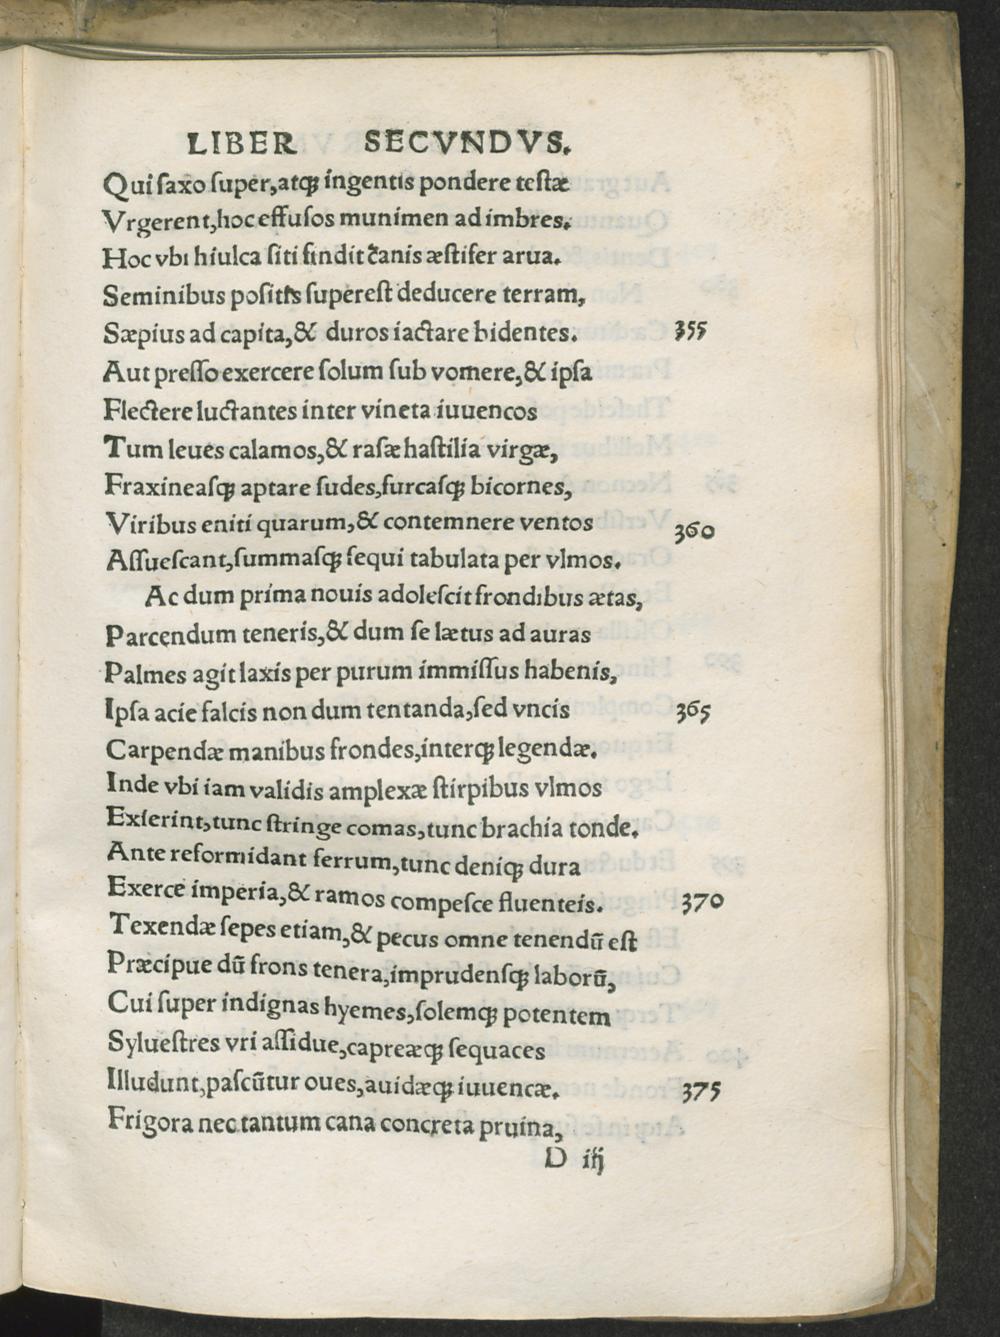 LIBER SECVNDVS.
Qui ſaxo ſuper,atqꝫ ingentis pondere teſtæ
Vrgerent,hoc effuſos munimen ad imbres.
Hoc vbi hiulca ſiti findit canis æſtifer arua.
Seminibus poſitis ſupereſt deducere terram,
Sæpius ad capita,& duros iactare bidentes. 355
Aut preſſo exercere ſolum ſub vomere,& ipſa
Flectere luctantes inter vineta iuuencos
Tum leues calamos,& raſæ haſtilia virgæ,
Fraxineaſqꝫ aptare ſudes,furcaſqꝫ bicornes,
Viribus eniti quarum,& contemnere ventos 360
Aſſueſcant,ſummaſqꝫ ſequi tabulata per vlmos.
Ac dum prima nouis adoleſcit frondibus ætas,
Parcendum teneris,& dum ſe lætus ad auras
Palmes agit laxis per purum immiſſus habenis,
Ipſa acie falcis non dum tentanda,ſed vncis 365
Carpendæ manibus frondes,interqꝫ legendæ.
Inde vbi iam validis amplexæ ſtirpibus vlmos
Exierint,tunc ſtringe comas,tunc brachia tonde.
Ante reformidant ferrum,tunc deniqꝫ dura
Exerce imperia,& ramos compeſce fluenteis. 370
Texendæ ſepes etiam,& pecus omne tenendū eſt
Præcipue dū frons tenera,imprudenſqꝫ laborū,
Cui ſuper indignas hyemes,ſolemqꝫ potentem
Sylueſtres vri aſſidue,capreæqꝫ ſequaces
Illudunt,paſcūtur oues,auidæqꝫ iuuencæ. 375
Frigora nec tantum cana concreta pruina,
D iij